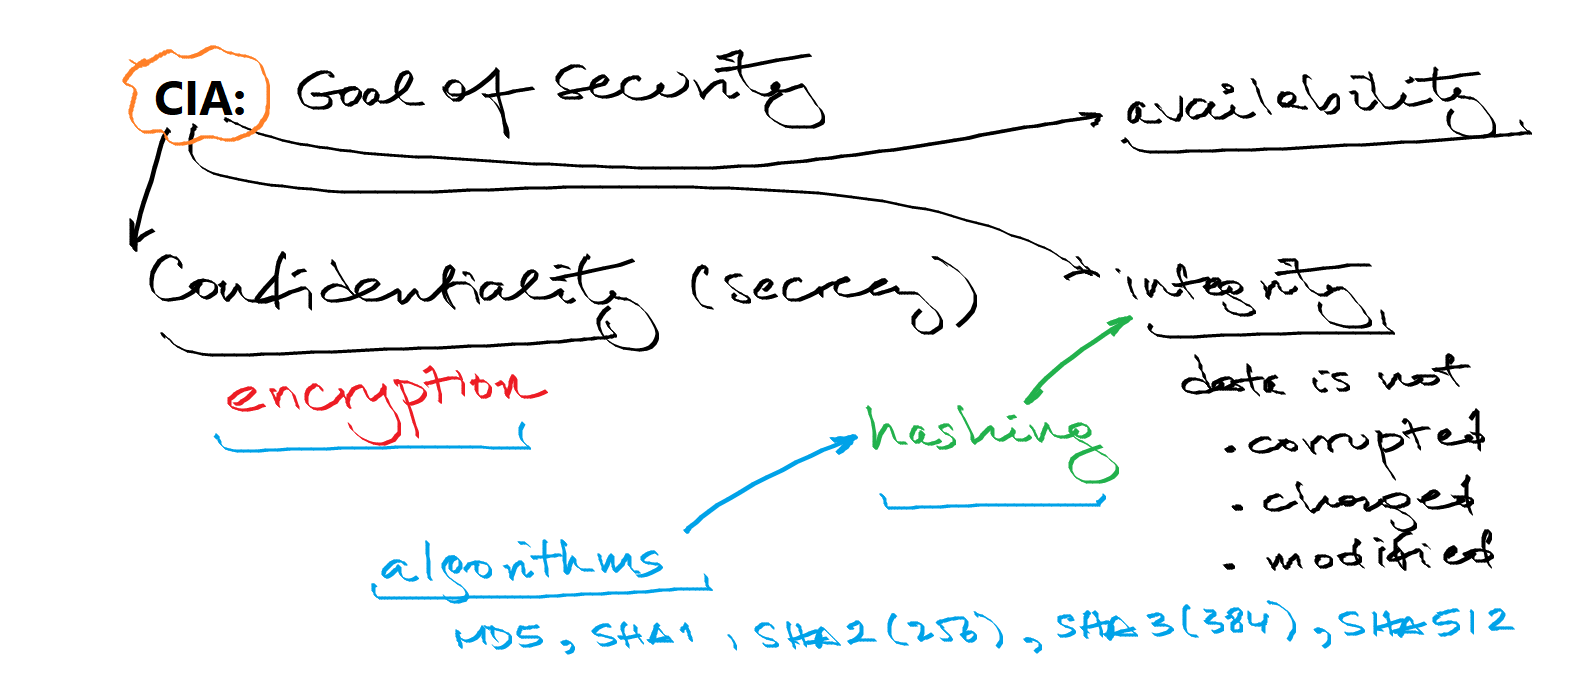 CIA: Goal of security
availability
Confidentiality (secrecy)
integrity
encryption
data is not
hashing
. corrupted
. changed
algorithms
. modified
MD5, SHA1, SHA2(256), SHA3(384), SHA512